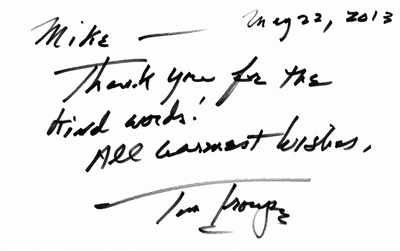 May 22, 2013
Mike —
Thank you for the
kind words!
All warmest wishes,
Tom